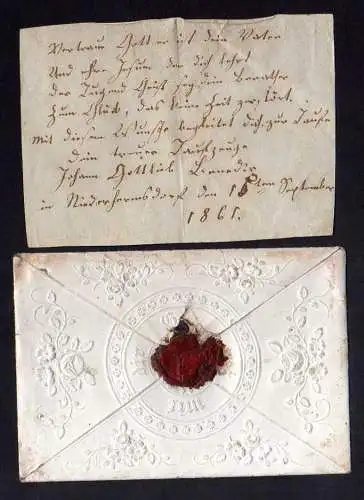 Vertraue Gott er ist dein Vater
Und ehre Jesum der dich lehrt
der Tugend Geist sey dein Berather
Zum Glück, das keine Zeit zerstört.
Mit diesem Wunsche begleitet dich zur Taufe
Dein treuer Taufzeuge
Johann Gottlieb
in Niederhermsdorf den 15ten September
1861.